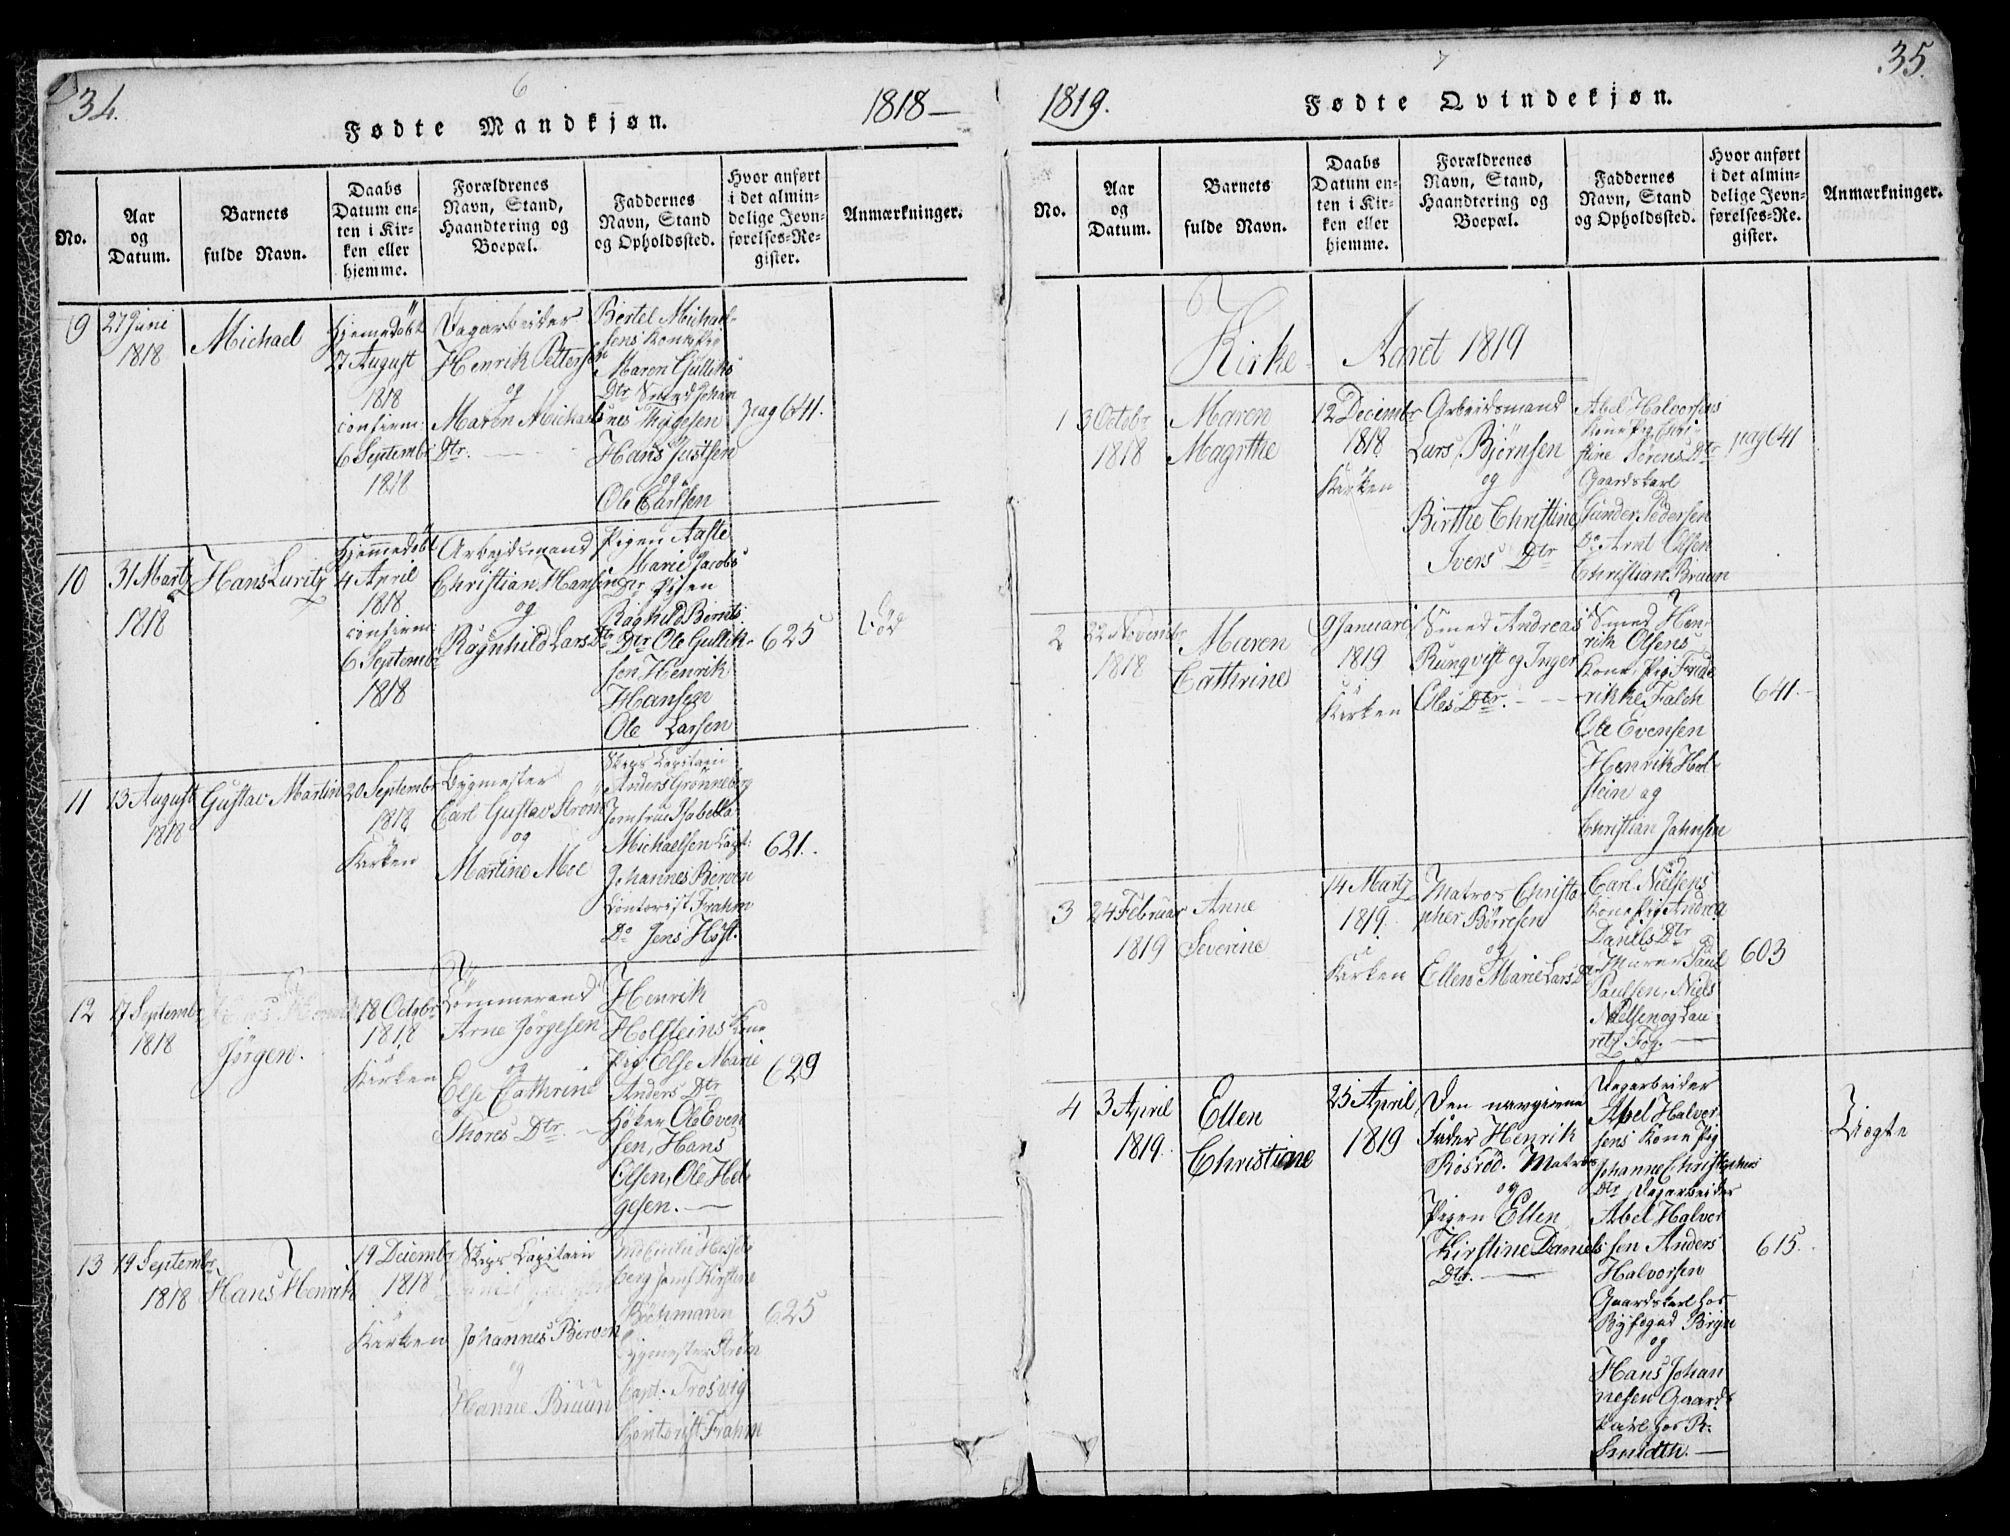 34.
6
Fødte Mandkjøn.
1818 —
No.
Aar
og
Datum.
Barnets
fulde Navn.
Daabs
Datum en-
ten i Kir-
ken eller
hjemme.
Forældrenes
Navn, Stand,
Haandtering og
Boepæl.
Faddernes
Navn, Stand
og Opholdssted.
Hvor anført
i det almin-
delige Jevn-
førelses-Re-
gister.
Anmærkninger.
9
27 Juni
1818
Michael
Hjemedøbt
27 August
1818
confirm:
6 Septembr
1818
Dagarbeider
Henrik Pettersen
og
Maren Michaels
Dtr. —
Bertel Michael-
sens Kone
Maren Gulliks
Dtr Smed Johan
nes Thygesen
Hans Justsen
og
Ole Carlsen
pag 641.
10
31 Martz
1818
Hans Luritz
Hjemmedøbt
4 April
1818
confirm:
6 Septembr
1818
Arbejdsmand
Christian Hansen
og
Ragnhild Lars Dtr
Pigen Aaste
Marie Jacobs
Dtr Pigen
Raghild Bernts
Dtr Ole Gullik-
sen Henrik
Hansen
Ole Larsen
625
Død
11
13 August
1818
Gustav Martin
20 Septembr
1818
Kirken
Bygmester
Carl Gustav Strøm
og
Martine Moe
Skips Capitain
Anders Grønneberg
Jomfrue Isabella
Michaelsen Capt:
Johannes Berven
Contorist Frahm
Do Jens Høst.
621.
12
17 Septembr
1818
Jørgen.
18 Octobr
1818
Kirken
Tømmermand
Arne Jørgesen
og
Else Cathrine
Thores Dtr. —
Henrik
Holsteins Kone
Pig: Else Marie
Anders Dtr
Høker Ole Even
sen, Hans
Elsen, Ole Hel-
gesen. —
629
13
19 Septembr
1818
Hans Henrik
19 Decembr
1818
Kirken
Skips Capitain
Johannes Berven
og
Hanne Bruun
berg Jomf Kirstine
Bochmann
Bygmester Strøm
Capt: Trosvig
Contorist Frahm
625
35.
7
1819.
Fødte Qvindekjøn.
No.
Aar
og
Datum.
Barnets
fulde Navn.
Daabs
Datum en-
ten i Kir-
ken eller
hjemme.
Forældrenes
Navn, Stand,
Haandtering og
Boepæl.
Faddernes
Navn, Stand
og Opholdssted.
Hvor anført
i det almin-
delige Jevn-
førelses-Re-
gister.
Anmærkninger.
Kirke Aaret 1819
1
3 Octobr
1818
Maren
Magrthe
12 Decembr
1818
Kirken
Arbeidsmand
Lars Bjørnsen
og
Birthe Christine
Ivers Dtr
Abel Halvorsens
Kone Pig Chri-
stine Sørens Dtr
Gaardskarl
Gunder Pedersen
Do Arnt Olsen
Christian Bruun
pag 641
2
22 Novembr
1818
Maren
Cathrine
9 Januari
1819
Kirken
Smed Andreas
Runqvist og Inger
Oles Dtr. —
Smed Hen-
rik Olsens
Kone, Pig Frede
rikke Falch
Ole Evensen
Henrik Hol-
stein og
Christian Jahnsen
641. –
3
24 Februar
1819
Anne
Severine
14 Martz
1819.
Kirken
Matros Christo
pher Børresen
og
Ellen Marie Lars Dtr
Carl Nielsens
Kone Pig Andrea
Daniels Dtr
Murer Paul
Paulsen, Niels
Nielsen og Lau
ritz Fog. —
603
4
3 April
1819.
Ellen
Christine
25 April
1819
Den navgivne
Fader Henrik
Rosrød. Matros
og
Pigen Ellen
Kirstine Daniels
Dtr. —
Dagarbeider
Abel Halvor
sens Kone Pig
Johanne Christophers
Dtr Dagarbeider
Abel Halvor
sen Anders
Halvorsen
Gaardskarl hos
Byfogad Birge
og
Hans Johan
nesen Gaards
karl hos R.
Smidth. —
615.
Uægte